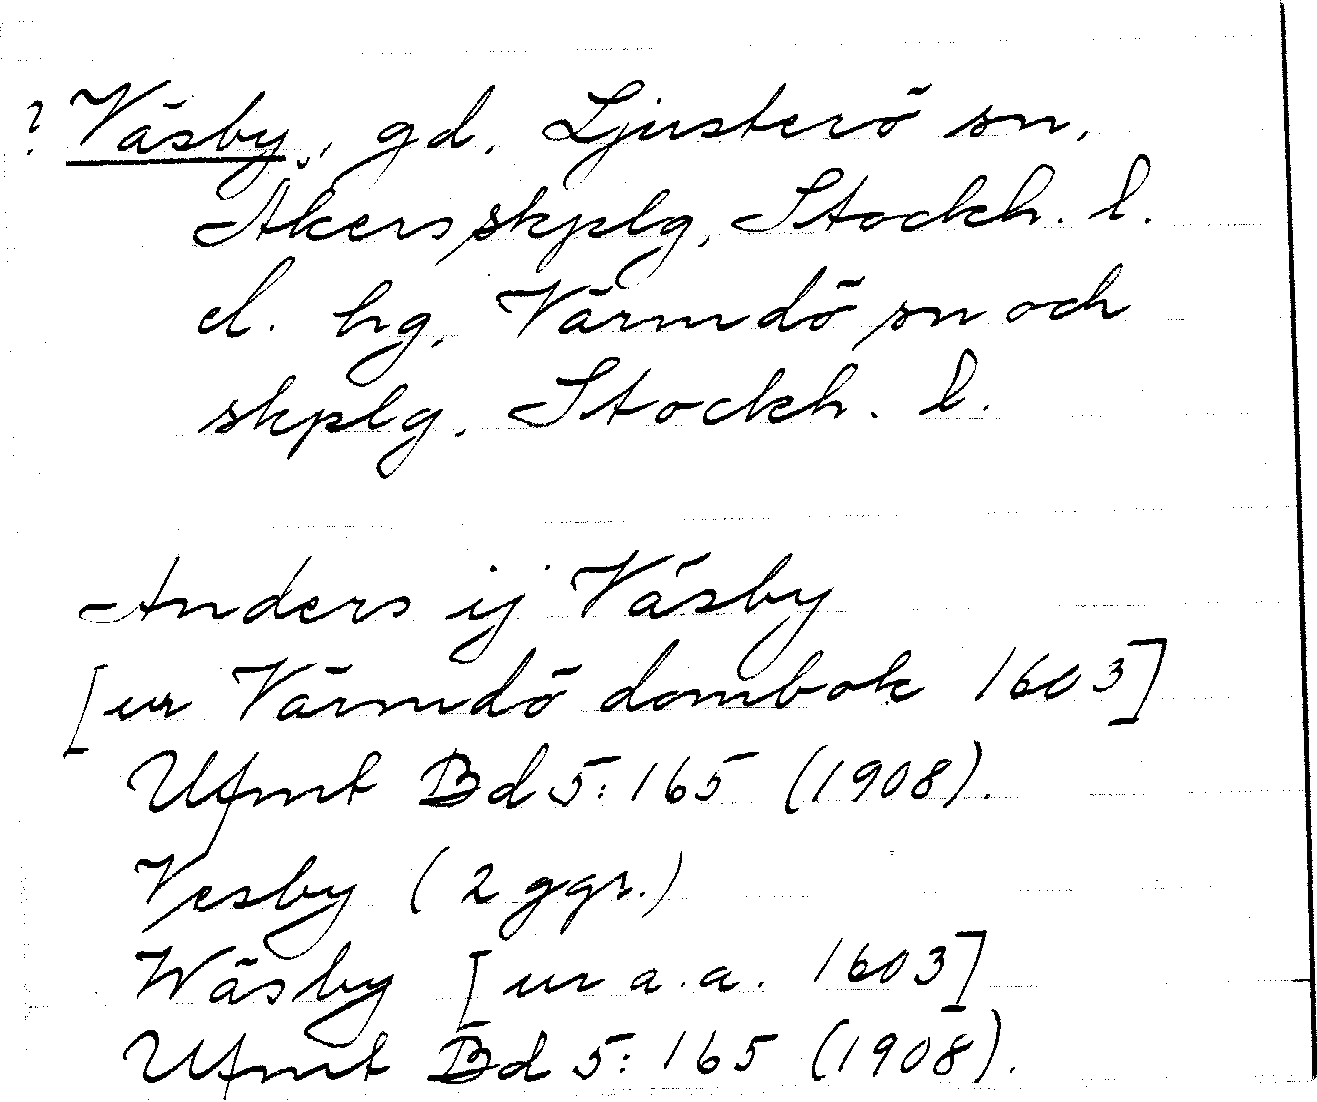 ? Väsby, gd, Ljusterö sn,
Åkers skplg, Stockh. l.
el. hg, Värmdö sn och
skplg. Stockh. l.
Anders ij Väsby
[ur Värmdö dombok 1603]
Ufmt Bd 5:165 (1908).
Vesby (2 ggr.)
Wäsby [ur a.a. 1603]
Ufmt Bd 5:165 (1908).